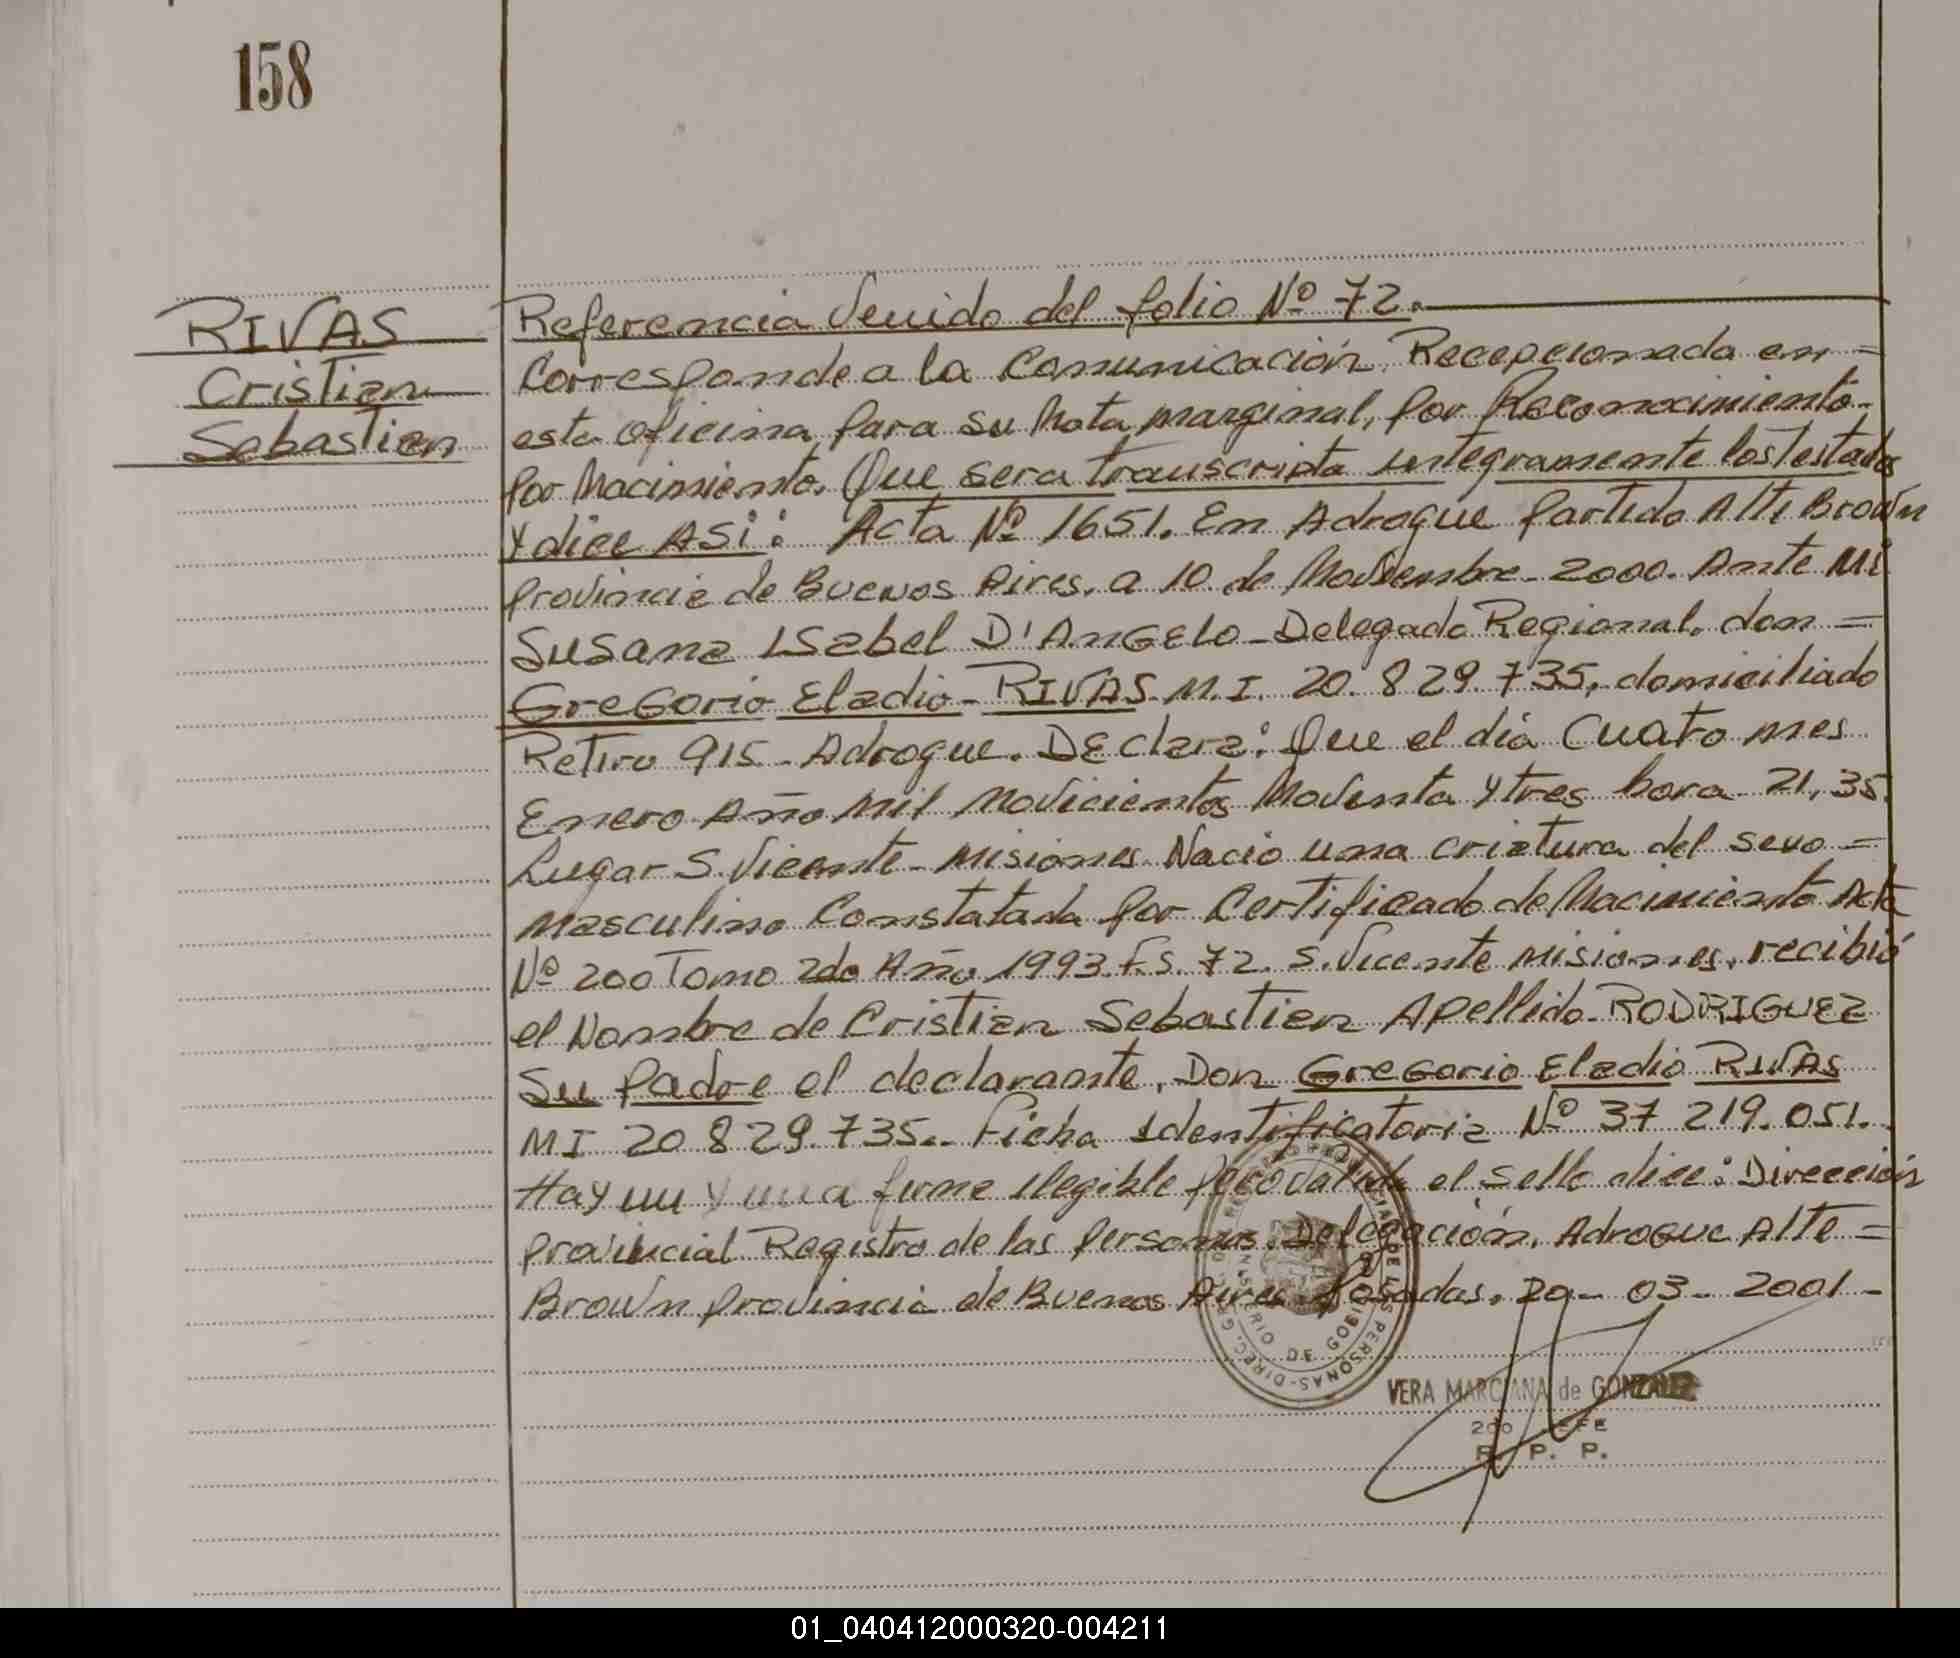 158
RIVAS
Cristian
Sebastian
Referencia Venido del folio Nº 72.
Corresponde a la Comunicación, Recepcionada en =
esta oficina, para su Nota marginal, por Reconocimiento.
por Nacimiento. Que sera transcripta integramente los testados
Y dice ASi: Acta Nº 1651. En Adrogue partido Alte Brown
provincia de Buenos Aires, a 10 de Noviembre - 2000. Ante Mi
Susana Isabel D'Angelo - Delegado Regional, don =
Gregorio Eladio - RIVAS. M.I. 20.829.735, domiciliado
Retiro 915 - Adrogue. DEclara: Que el día Cuatro mes
Enero Año Mil Novicientos Noventa y tres hora - 21,35
Lugar S. Vicente - Misiones. Nacio una criatura del sexo =
Masculino Constatada por Certificado de Nacimiento Acta
Nº 200 Tomo 2do Año, 1993. F.S. 72. S. Vicente Misiones, recibió
el Nombre de Cristian Sebastian Apellido - RODRIGUEZ
Su padre el declarante, Don Gregorio Eladio RIVAS
MI 20 829.735.- Ficha Identificatoria Nº 37 219.051.
Hay un y una firma ilegible pero el sello dice: Dirección
provincial Registro de las personas. Delegación, Adrogue Alte =
Brown provincia de Buenos Aires. Posadas, 29 - 03 - 2001 -
PERSONAS - DIREC. G
DE
VERA MARCIANA de GONZALEZ
2do JEFE
R. P. P.
01_040412000320-004211